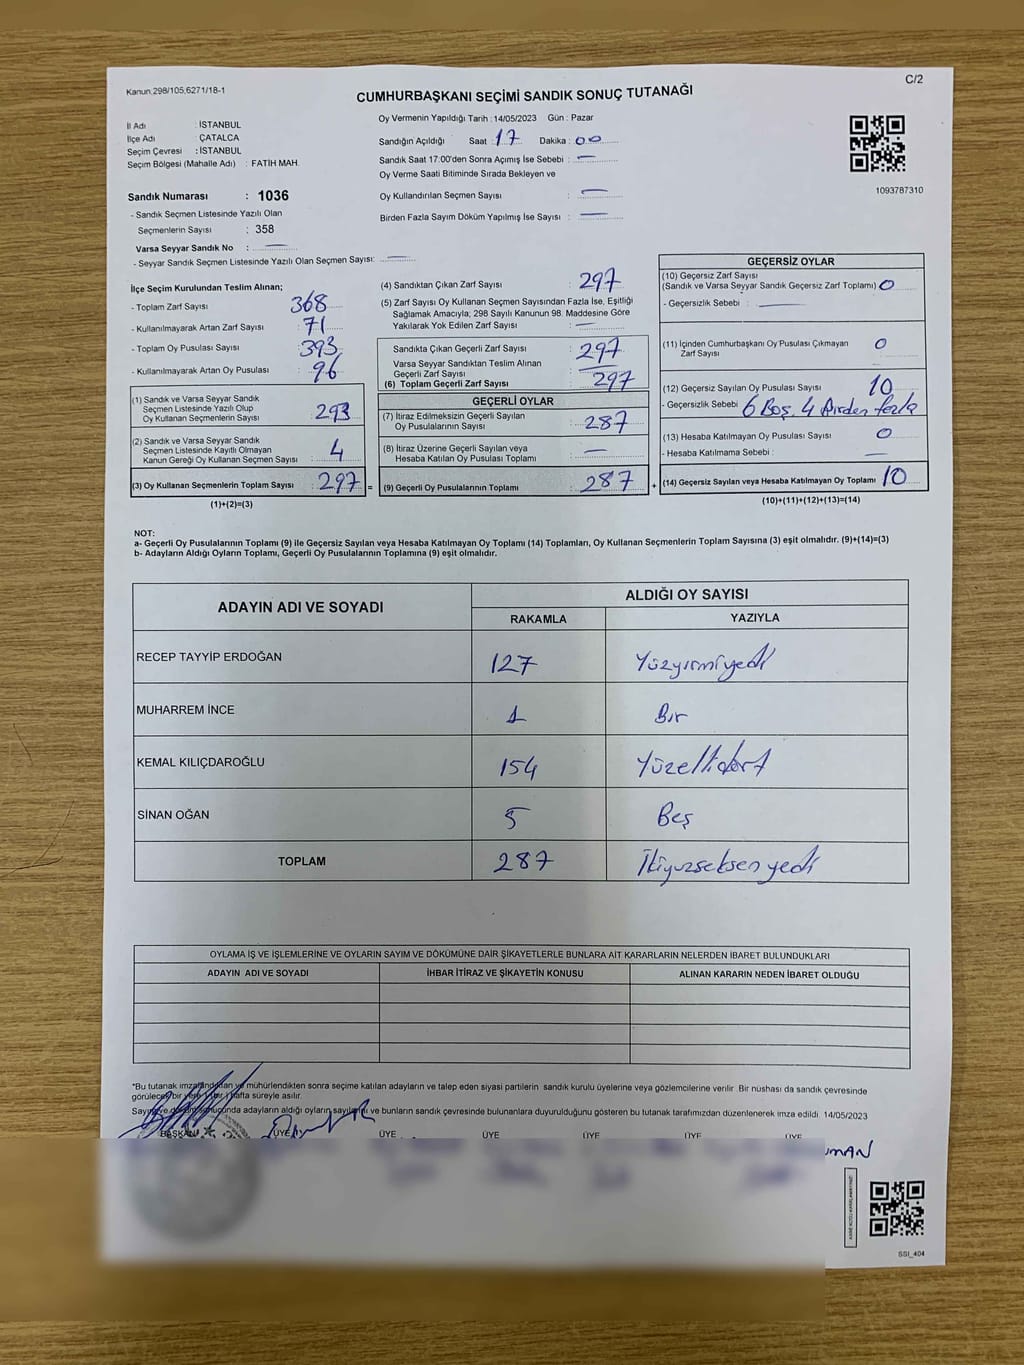 Kanun,298/105,6271/18-1
C/2
CUMHURBAŞKANI SEÇİMİ SANDIK SONUÇ TUTANAĞI
İl Adı : İSTANBUL
İlçe Adı : ÇATALCA
Seçim Çevresi : İSTANBUL
Seçim Bölgesi (Mahalle Adı) : FATİH MAH.
Oy Vermenin Yapıldığı Tarih : 14/05/2023 Gün : Pazar
Sandığın Açıldığı Saat : 17 Dakika : 00
Sandık Saat 17:00'den Sonra Açımış İse Sebebi : —
Oy Verme Saati Bitiminde Sırada Bekleyen ve
Oy Kullandırılan Seçmen Sayısı : —
Birden Fazla Sayım Döküm Yapılmış İse Sayısı : —
1093787310
Sandık Numarası : 1036
- Sandık Seçmen Listesinde Yazılı Olan
Seçmenlerin Sayısı : 358
Varsa Seyyar Sandık No : —
- Seyyar Sandık Seçmen Listesinde Yazılı Olan Seçmen Sayısı: —
İlçe Seçim Kurulundan Teslim Alınan;
- Toplam Zarf Sayısı : 368
- Kullanılmayarak Artan Zarf Sayısı : 71
- Toplam Oy Pusulası Sayısı : 393
- Kullanılmayarak Artan Oy Pusulası : 96
(1) Sandık ve Varsa Seyyar Sandık
Seçmen Listesinde Yazılı Olup
Oy Kullanan Seçmenlerin Sayısı : 293
(2) Sandık ve Varsa Seyyar Sandık
Seçmen Listesinde Kayıtlı Olmayan
Kanun Gereği Oy Kullanan Seçmen Sayısı : 4
(3) Oy Kullanan Seçmenlerin Toplam Sayısı : 297 =
(1)+(2)=(3)
(4) Sandıktan Çıkan Zarf Sayısı : 297
(5) Zarf Sayısı Oy Kullanan Seçmen Sayısından Fazla İse, Eşitliği
Sağlamak Amacıyla; 298 Sayılı Kanunun 98. Maddesine Göre
Yakılarak Yok Edilen Zarf Sayısı : —
Sandıkta Çıkan Geçerli Zarf Sayısı : 297
Varsa Seyyar Sandıktan Teslim Alınan
Geçerli Zarf Sayısı : —
(6) Toplam Geçerli Zarf Sayısı : 297
GEÇERLİ OYLAR
(7) İtiraz Edilmeksizin Geçerli Sayılan
Oy Pusulalarının Sayısı : 287
(8) İtiraz Üzerine Geçerli Sayılan veya
Hesaba Katılan Oy Pusulası Toplamı : —
(9) Geçerli Oy Pusulalarının Toplamı : 287 +
GEÇERSİZ OYLAR
(10) Geçersiz Zarf Sayısı
(Sandık ve Varsa Seyyar Sandık Geçersiz Zarf Toplamı) : 0
- Geçersizlik Sebebi : —
(11) İçinden Cumhurbaşkanı Oy Pusulası Çıkmayan
Zarf Sayısı : 0
(12) Geçersiz Sayılan Oy Pusulası Sayısı : 10
- Geçersizlik Sebebi : 6 Boş, 4 Birden fazla
(13) Hesaba Katılmayan Oy Pusulası Sayısı : 0
- Hesaba Katılmama Sebebi : —
(14) Geçersiz Sayılan veya Hesaba Katılmayan Oy Toplamı : 10
(10)+(11)+(12)+(13)=(14)
NOT:
a- Geçerli Oy Pusulalarının Toplamı (9) ile Geçersiz Sayılan veya Hesaba Katılmayan Oy Toplamı (14) Toplamları, Oy Kullanan Seçmenlerin Toplam Sayısına (3) eşit olmalıdır. (9)+(14)=(3)
b- Adayların Aldığı Oyların Toplamı, Geçerli Oy Pusulalarının Toplamına (9) eşit olmalıdır.
ADAYIN ADI VE SOYADI ALDIĞI OY SAYISI
RAKAMLA YAZIYLA
RECEP TAYYİP ERDOĞAN 127 Yüzyirmiyedi
MUHARREM İNCE 1 Bir
KEMAL KILIÇDAROĞLU 154 Yüzellidört
SİNAN OĞAN 5 Beş
TOPLAM 287 İkiyüzseksenyedi
OYLAMA İŞ VE İŞLEMLERİNE VE OYLARIN SAYIM VE DÖKÜMÜNE DAİR ŞİKAYETLERLE BUNLARA AİT KARARLARIN NELERDEN İBARET BULUNDUKLARI
ADAYIN ADI VE SOYADI İHBAR İTİRAZ VE ŞİKAYETİN KONUSU ALINAN KARARIN NEDEN İBARET OLDUĞU
*Bu tutanak imzalandıktan ve mühürlendikten sonra seçime katılan adayların ve talep eden siyasi partilerin sandık kurulu üyelerine veya gözlemcilerine verilir. Bir nüshası da sandık çevresinde
görülecek bir yere 1 (bir) hafta süreyle asılır.
Sayım ve döküm sonucunda adayların aldığı oyların sayıları ve bunların sandık çevresinde bulunanlara duyurulduğunu gösteren bu tutanak tarafımızdan düzenlenerek imza edildi. 14/05/2023
BAŞKAN ÜYE ÜYE ÜYE ÜYE ÜYE ÜYE
SSI_404